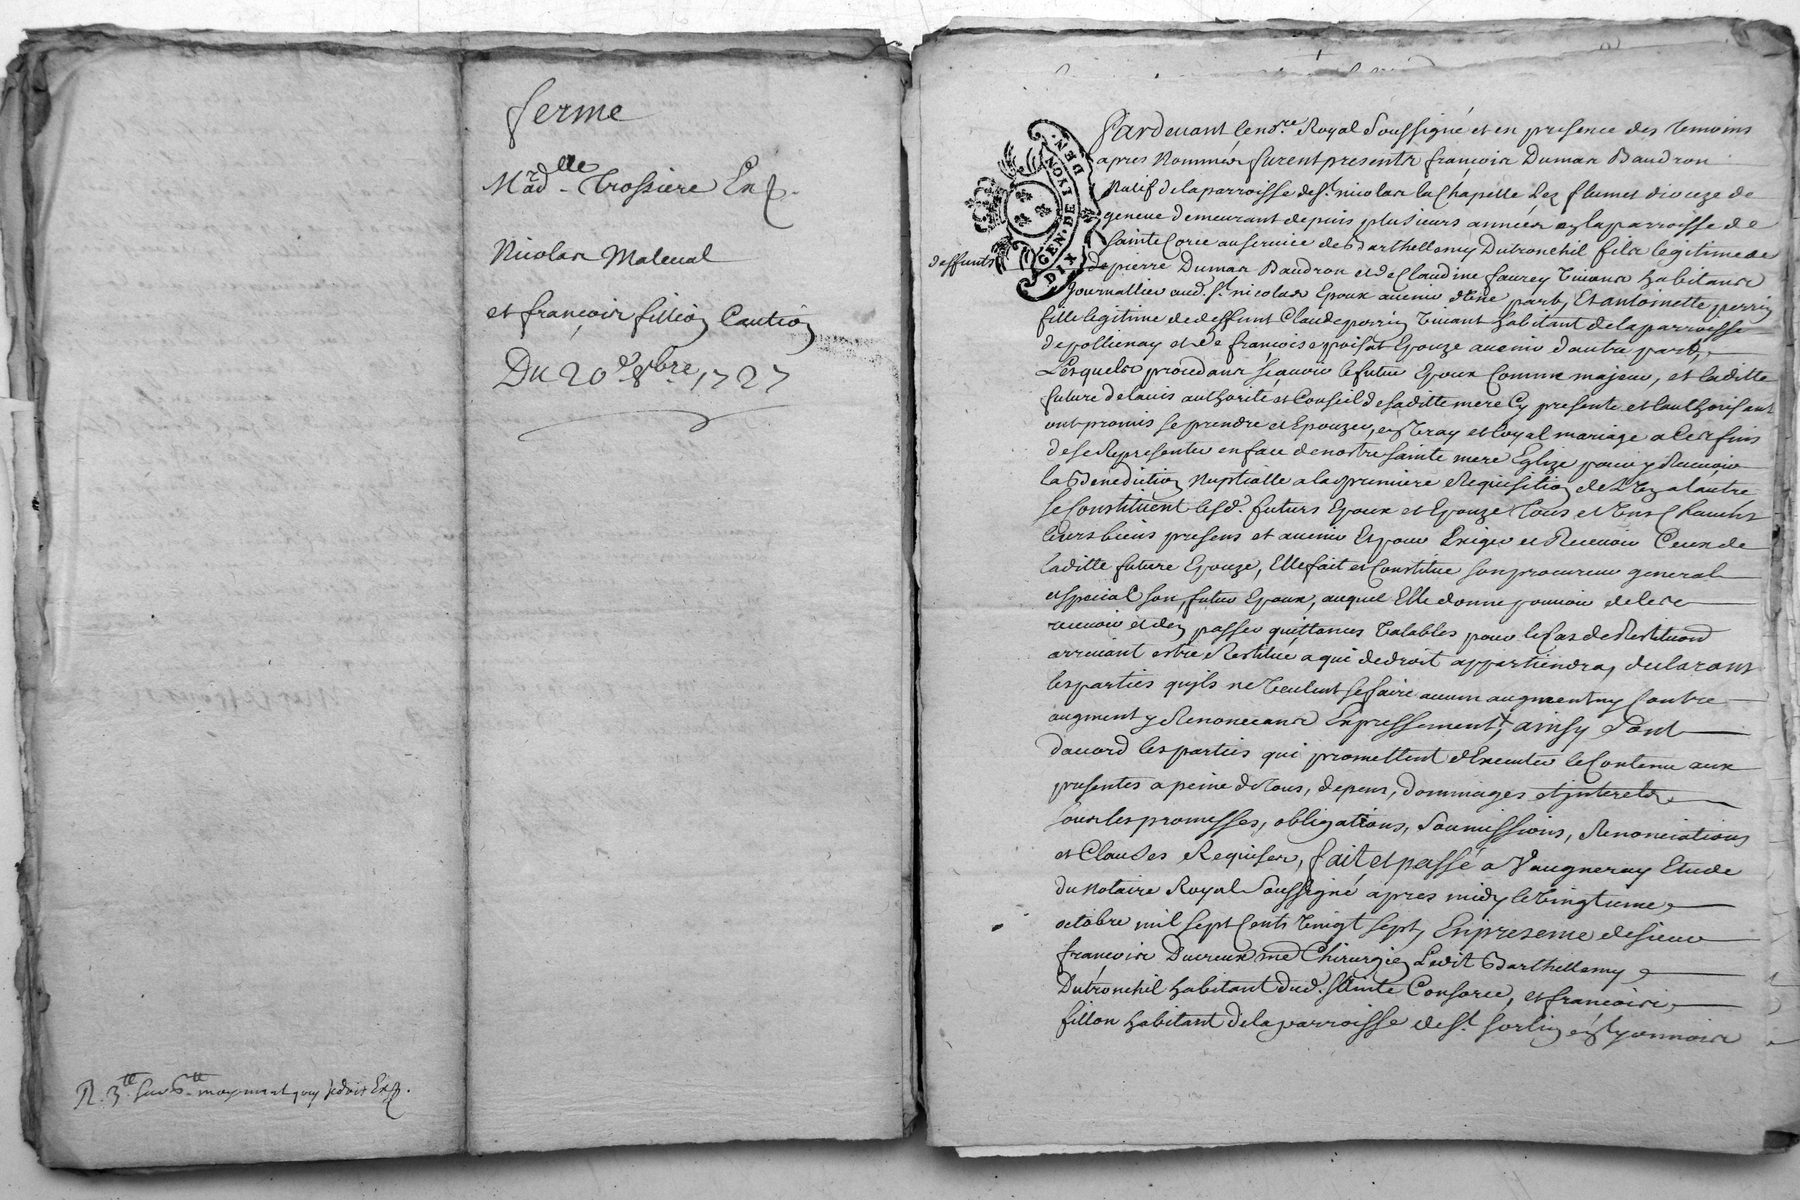 ferme
Mad.lle Trossiere Exp.
Nicolas Maleval
et françois fillion Caution
Du 20e 8bre 1727
GEN. DE LYON.
DIX DEN.
Pardevant le no.re Royal Soussigné et en presence des temoins
apres Nommés furent presents françois Dumas Baudron
Natif de la parroisse de St. nicolas la Chapelle Lez flumet dioceze de
geneve demeurant depuis plusieurs années en la parroisse de
Sainte Corce au service de Barthellemy Dutronchil fils legitime de
deffunts
pierre Dumas Baudron et de Claudine faurey vivans habitans
Journallier aud. St. nicolas Epoux avenir d'Une part, Et antoinette perrin
fille legitime de deffunt Claude perrin vivant habitant de la parroisse
de pollienay et de françoise poisat Epouze avenir d'autre part,
Lesquels procedans sçavoir le futur Epoux Comme majeur, et laditte
future de lavis authorité et Conseil de saditte mere Cy presente et lauthorisant
ont promis se prendre et Epouzer en vray et loyal mariage a les fins
de se Representer en face de nostre sainte mere Eglize pour y Recevoir
la Benediction Nuptialle a la premiere Requisition de L'un a lautre
se Constituent lesd. futurs Epoux et Epouze tous et Uns Chacuns
leurs biens presens et avenir Et pour Exiger et Recevoir Ceux de
laditte future Epouze, Elle fait et Constitue son procureur general
et special son futur Epoux, auquel Elle donne pouvoir de les
recevoir et d'en passer quittances valables pour le Cas de Restitution
arrivant estre Restitué a qui de droit appartiendra, declarans
les parties quyls ne veulent se faire aucun augment ny Contre
augment y Renonceans Expressement, ainsy Sont
d'accord les parties qui promettent d'Executer le Contenu aux
presentes a peine de tous, depens, dommages et interets
sous les promesses, obligations, soumissions, Renonciations
et Clauses Requises, fait et passé a Vaugneray Etude
du Notaire Royal Soussigné apres midy le vingtieme
octobre mil sept Cents vingt sept, En presence de sieur
françois Ducreux me Chirurgien Ledit Barthellemy
Dutronchil habitant dud. Sainte Consorce, et françois
fillon habitant de la parroisse de St. sorlin en lyonnois